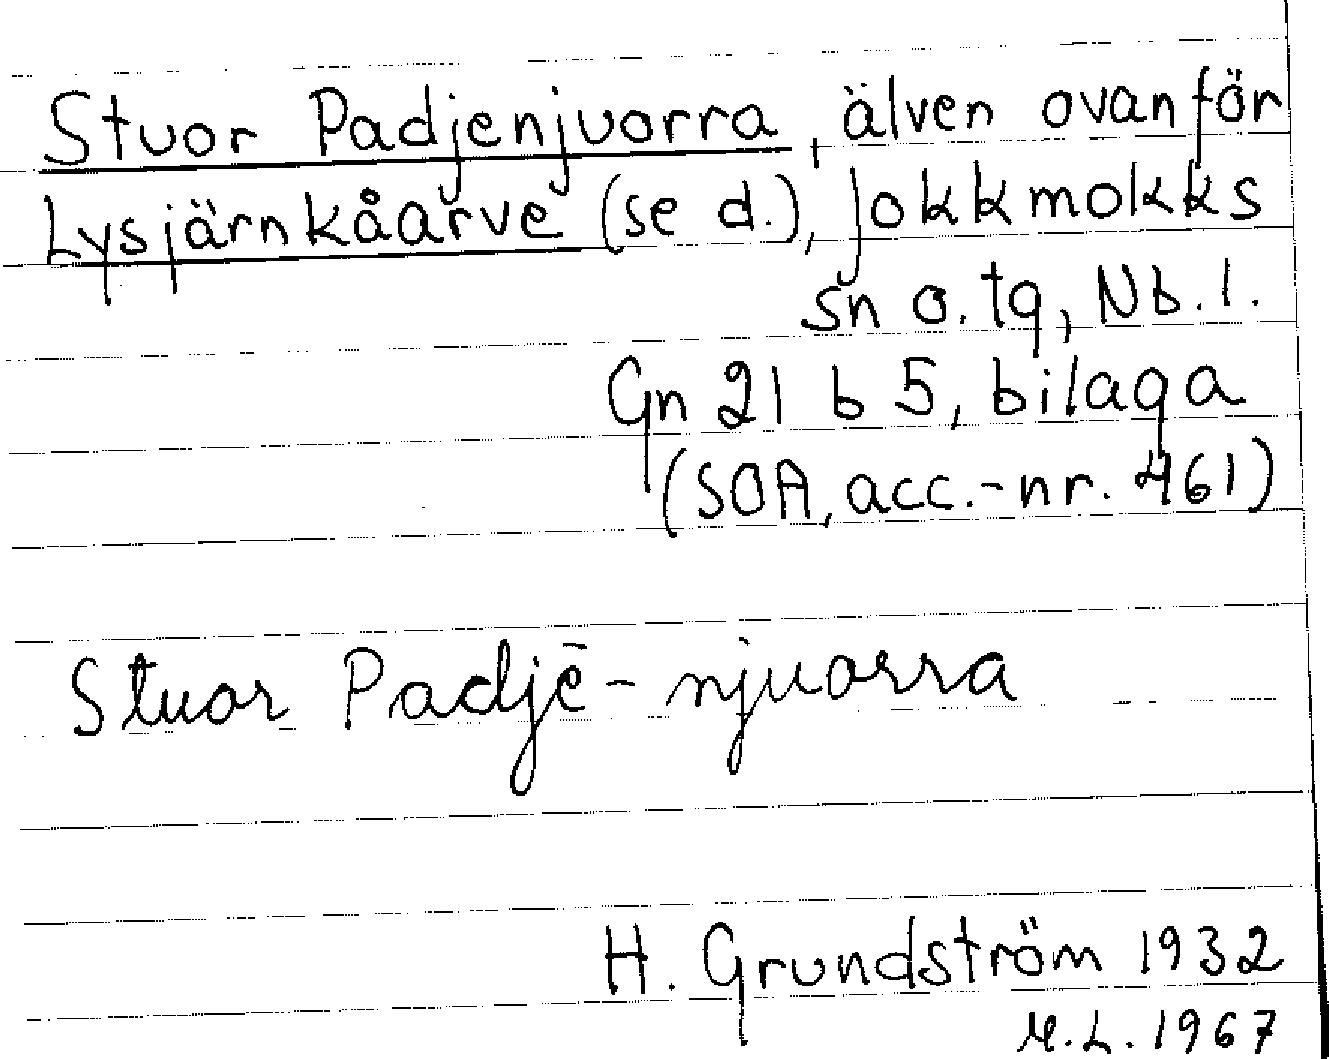 Stuor Padjenjuorra, älven ovanför
Lysjärnkåarve (se d.), Jokkmokks
sn o. tg, Nb. l.
Gn 21 b 5, bilaga
(SOA, acc.-nr. 461)
Stuor Padjē-njuorra
H. Grundström 1932
M.L. 1967